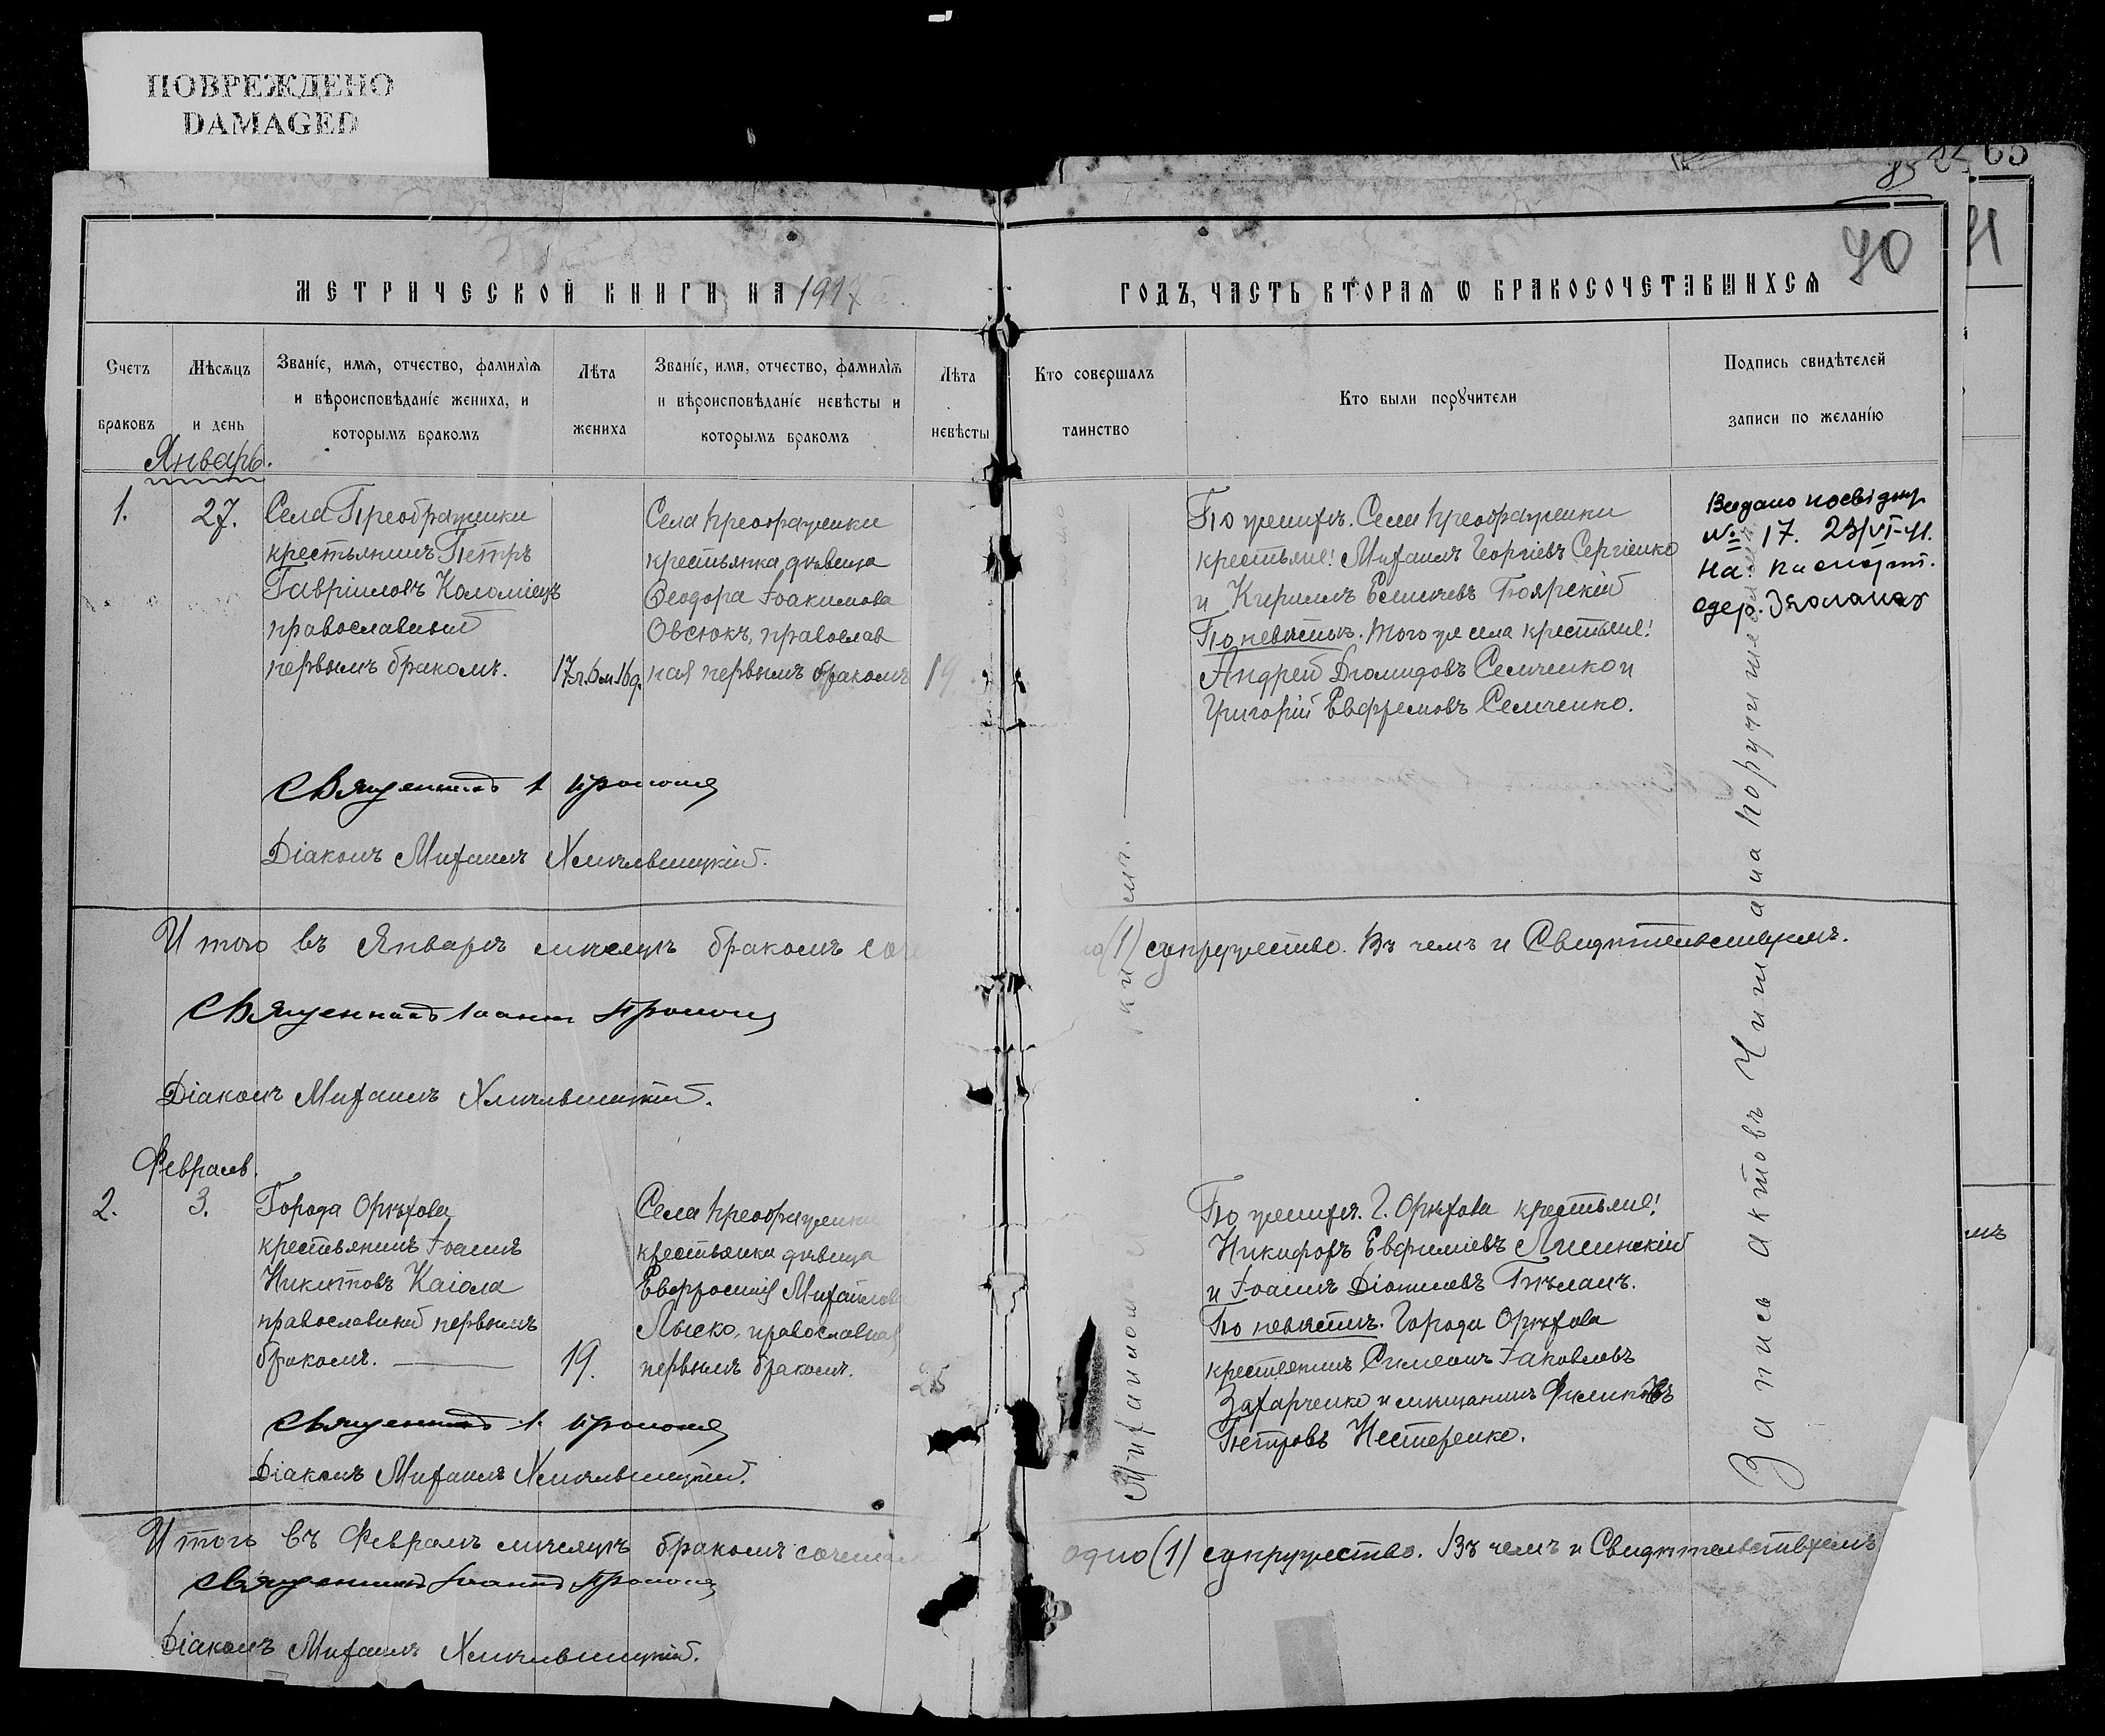 ПОВРЕЖДЕНО
DAMAGED
85
65
40
МЕТРИЧЕСКОЙ КНИГИ НА 1917
ГОДЪ, ЧАСТЬ ВТОРАЯ Ѡ БРАКОСОЧЕТАВШИХСЯ
Счетъ браковъ
Мѣсяцъ и день
Званіе, имя, отчество, фамилія
и вѣроисповѣданіе жениха, и
которымъ бракомъ
Лѣта жениха
Званіе, имя, отчество, фамилія
и вѣроисповѣданіе невѣсты и
которымъ бракомъ
Лѣта невѣсты
Кто совершалъ
таинство
Кто были поручители
Подпись свидѣтелей
записи по желанію
Январь.
1.
27.
Села Преображенки
крестьянинъ Петръ
Гавріиловъ Коломіецъ
православный
первымъ бракомъ.
17л.6м.16д.
Села Преображенки
крестьянка дѣвица
Ѳеодора Іоакимова
Овсюкъ, православ
ная первымъ бракомъ
19
По женихѣ. Села Преображенки
крестьяне: Михаилъ Георгіевъ Сергіенко
и Кириллъ Боярскій
По невѣстѣ. Того же села крестьяне:
Андрей Діомидовъ Семченко и
Григорій Евфремовъ Семченко.
Видано посвідку
№ 17. 23/VI-41.
На паспорт.
одер.
Священникъ І.
Діаконъ Михаилъ
Итого въ Январѣ мѣсяцѣ бракомъ соче
(1) супружество. Въ чемъ и Свидѣтельствуемъ.
Священникъ Іоаннъ
Діаконъ Михаилъ
Февраль.
2.
3.
Города Орѣхова
крестьянинъ Іоаннъ
Никитовъ Каіола
православный первымъ
бракомъ.
19.
Села Преображенки
крестьянка дѣвица
Евфросинія Михайлова
Лыско, православная
первымъ бракомъ.
25
По женихѣ. Г. Орѣхова крестьяне:
Никифоръ Евфиміевъ Лисинскій
и Іоаннъ Бѣланъ.
По невѣстѣ. Города Орѣхова
крестьянинъ Симеонъ Іаковлевъ
Захарченко и мѣщанинъ
Петровъ Нестеренко.
Священникъ І.
Діаконъ Михаилъ
Итого въ Февралѣ мѣсяцѣ бракомъ сочетал
одно (1) супружество. Въ чемъ и Свидѣтельствуемъ
Священникъ Іоаннъ
Діаконъ Михаилъ
Михаиломъ
Запись актовъ